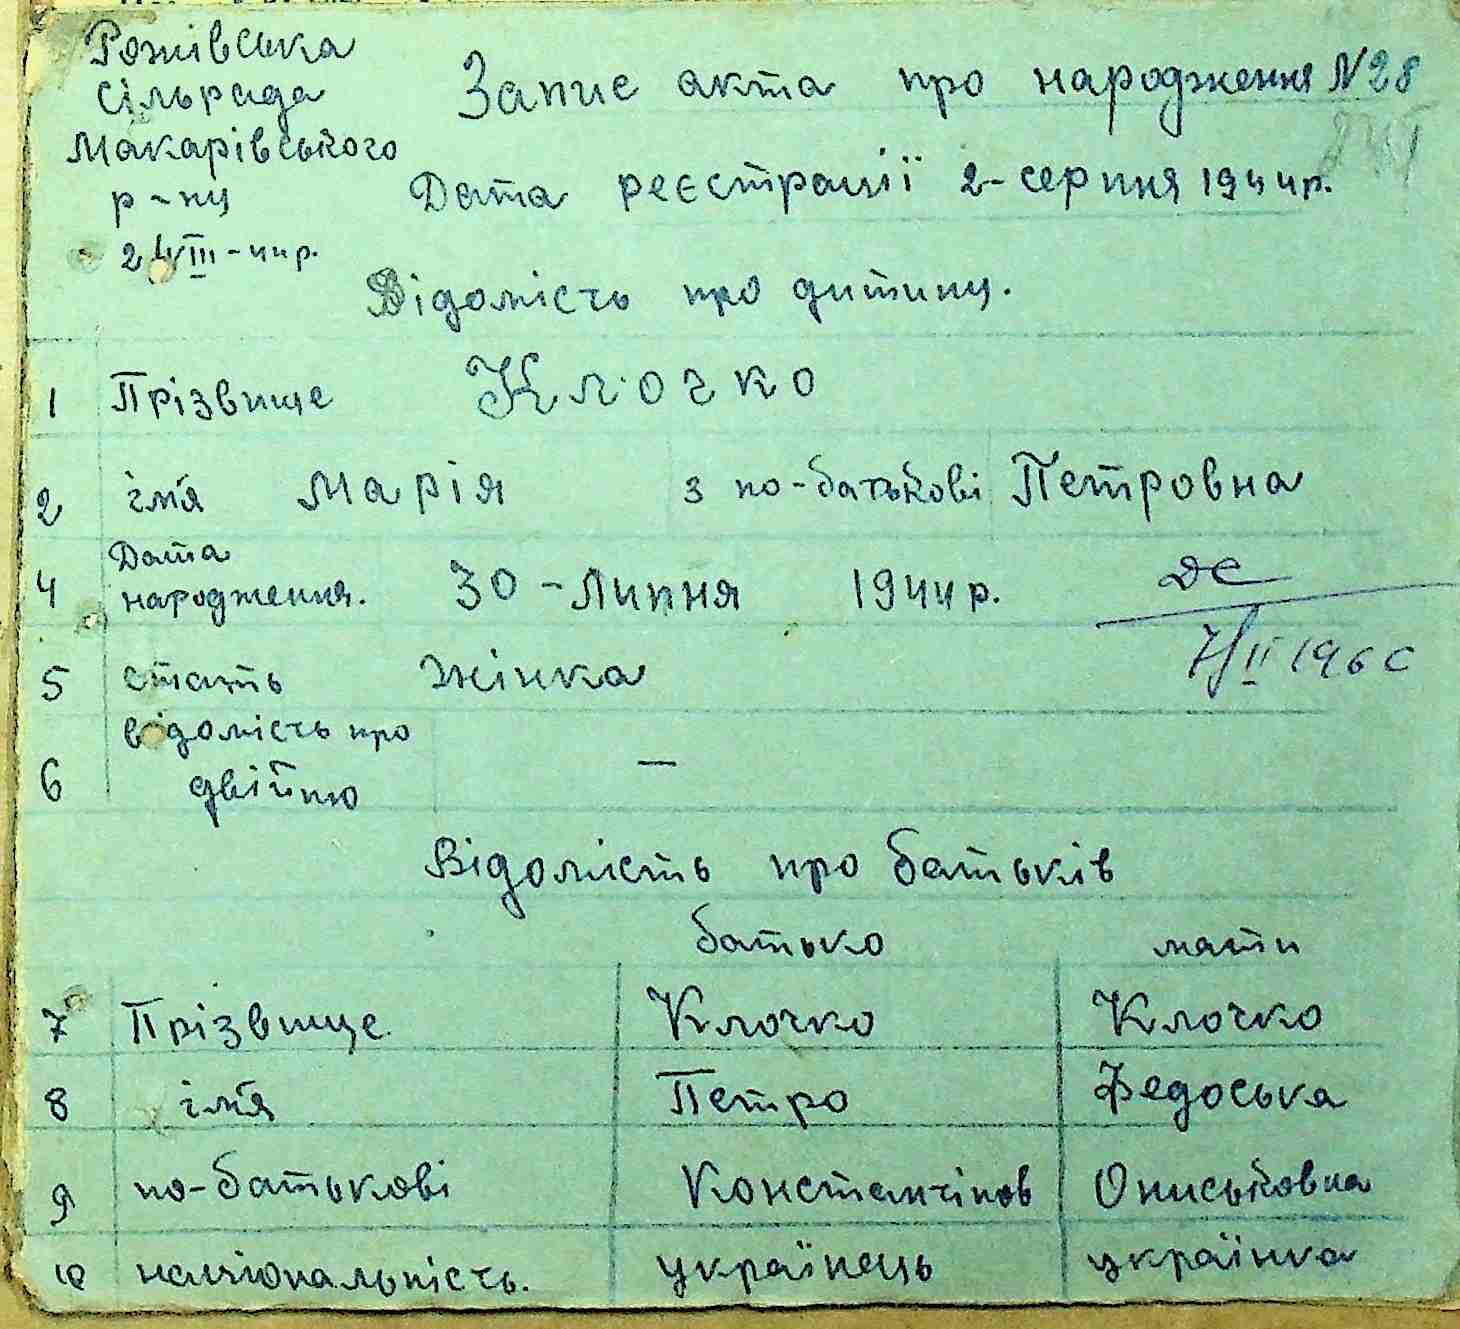 Рожівська
сільрада
Макарівського
р-ну
2/VIII-44р.
Запис акта про народження N28
Дата реєстрації 2-серпня 1944р.
Відомість про дитину.
1 Прізвище Клочко
2 ім'я Марія 3 по-батькові Петровна
4 Дата народження. 30-Липня 1944р.
7/II 1960
5 стать жінка
6 відомість про двійню —
Відомість про батьків
батько мати
7 Прізвище Клочко Клочко
8 ім'я Петро Федоська
9 по-батькові Константінов Ониськовна
10 національність. українець українка